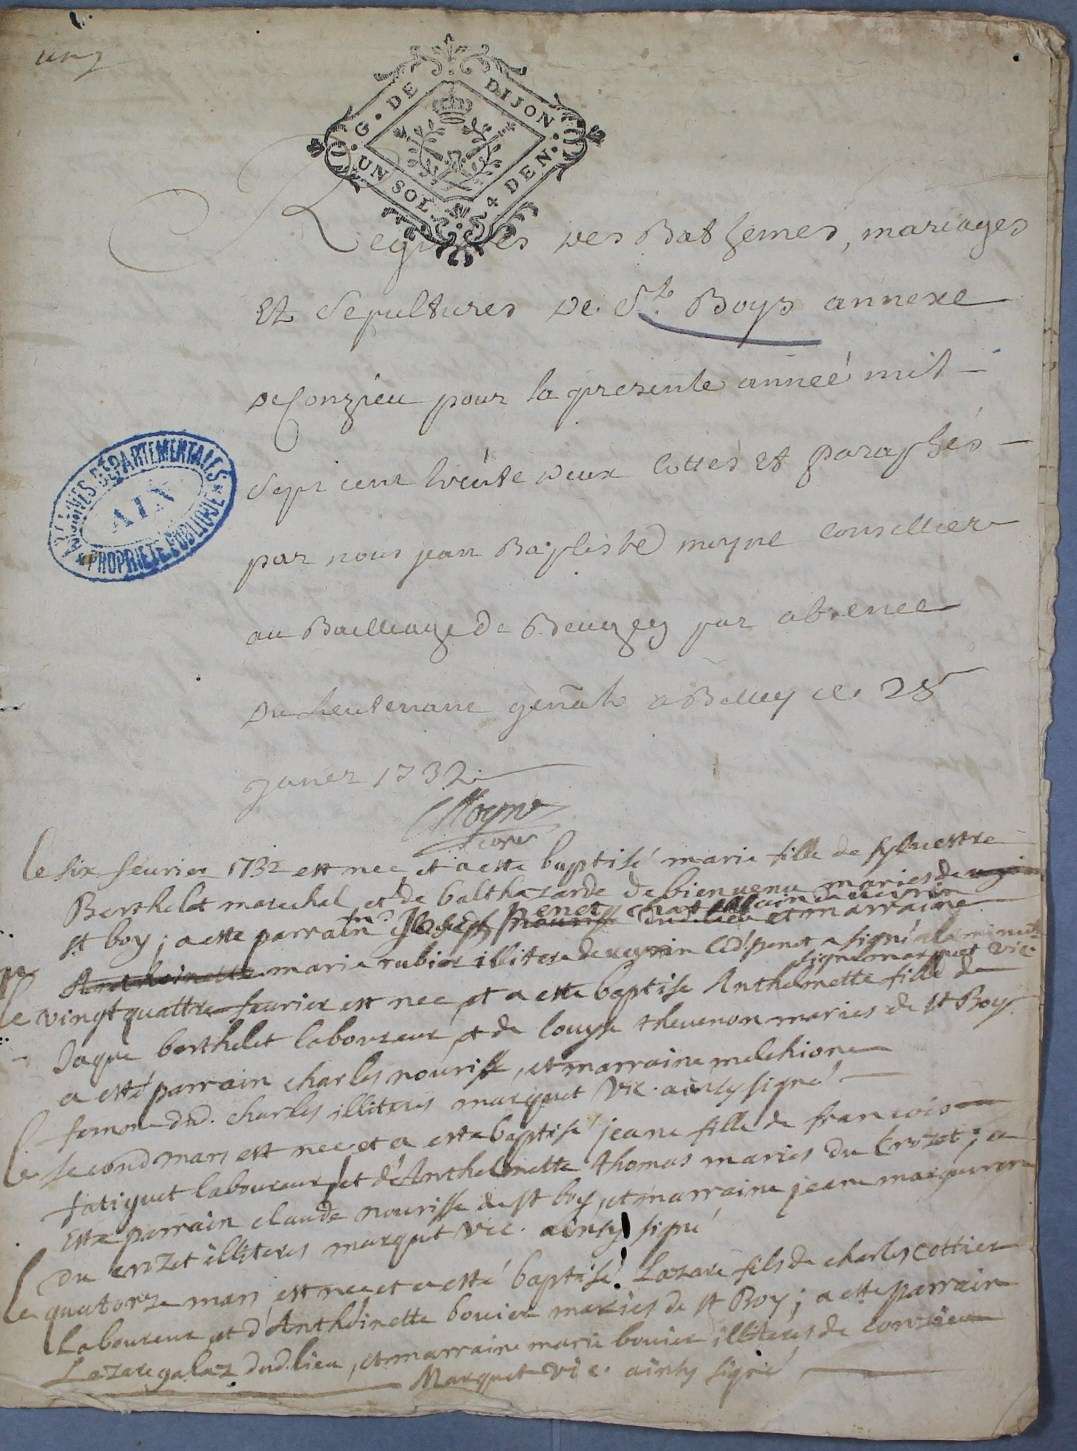 G. DE DIJON.
UN SOL. 4 DEN.
Registres des Batzemes, mariages
Et Sepultures De St. Boys annexe
De Conzieu pour la presente anneé mil
Sept cent trente deux Cottés et paraphés
par nous jean Baptiste moyne Conseiller
au Bailliage De Beugey par absence
Du Lieutenant genãl a Belley ce 28
janer 1732.
Moyne
ARCHIVES DÉPARTEMENTALES
AIN
PROPRIÉTÉ PUBLIQUE
le six feurier 1732 est nee et a esté baptisé marie fille de sylvestre
Berthelet marechal et de balthazarde de bienvenu maries de
st boy; a este parrain Joseph penet et marraine
Anthoinette marie rubier illitere de led. penet a signé a la minutte
signe marquet vic
le vingt quattre feurier est nee et a esté baptise Anthelmette fille de
Jaque berthelet laboureur et de louyse thevenon maries de st Boy.
a esté parrain charles nourisse, et marraine melchione
femme dud. charles illiteres marquet vic. ainsy signé
le second mars est nee et a este baptisé jeane fille de françois
fatiguet laboureur et de Anthelmette thomas maries du Crozet; a
este parrain claude nourisse de st boy, et marraine jeane
du crozet illiteres marquet vic. ainsy signé
le quatorze mars est nee et a esté baptisé Lazare fils de charles cottier
Laboureur et d'Anthoinette bovier maries de st Boy; a este parrain
Lazare galaz dud. lieu, et marraine marie bovier illiteres de conzieu
Marquet vic. ainsy signé